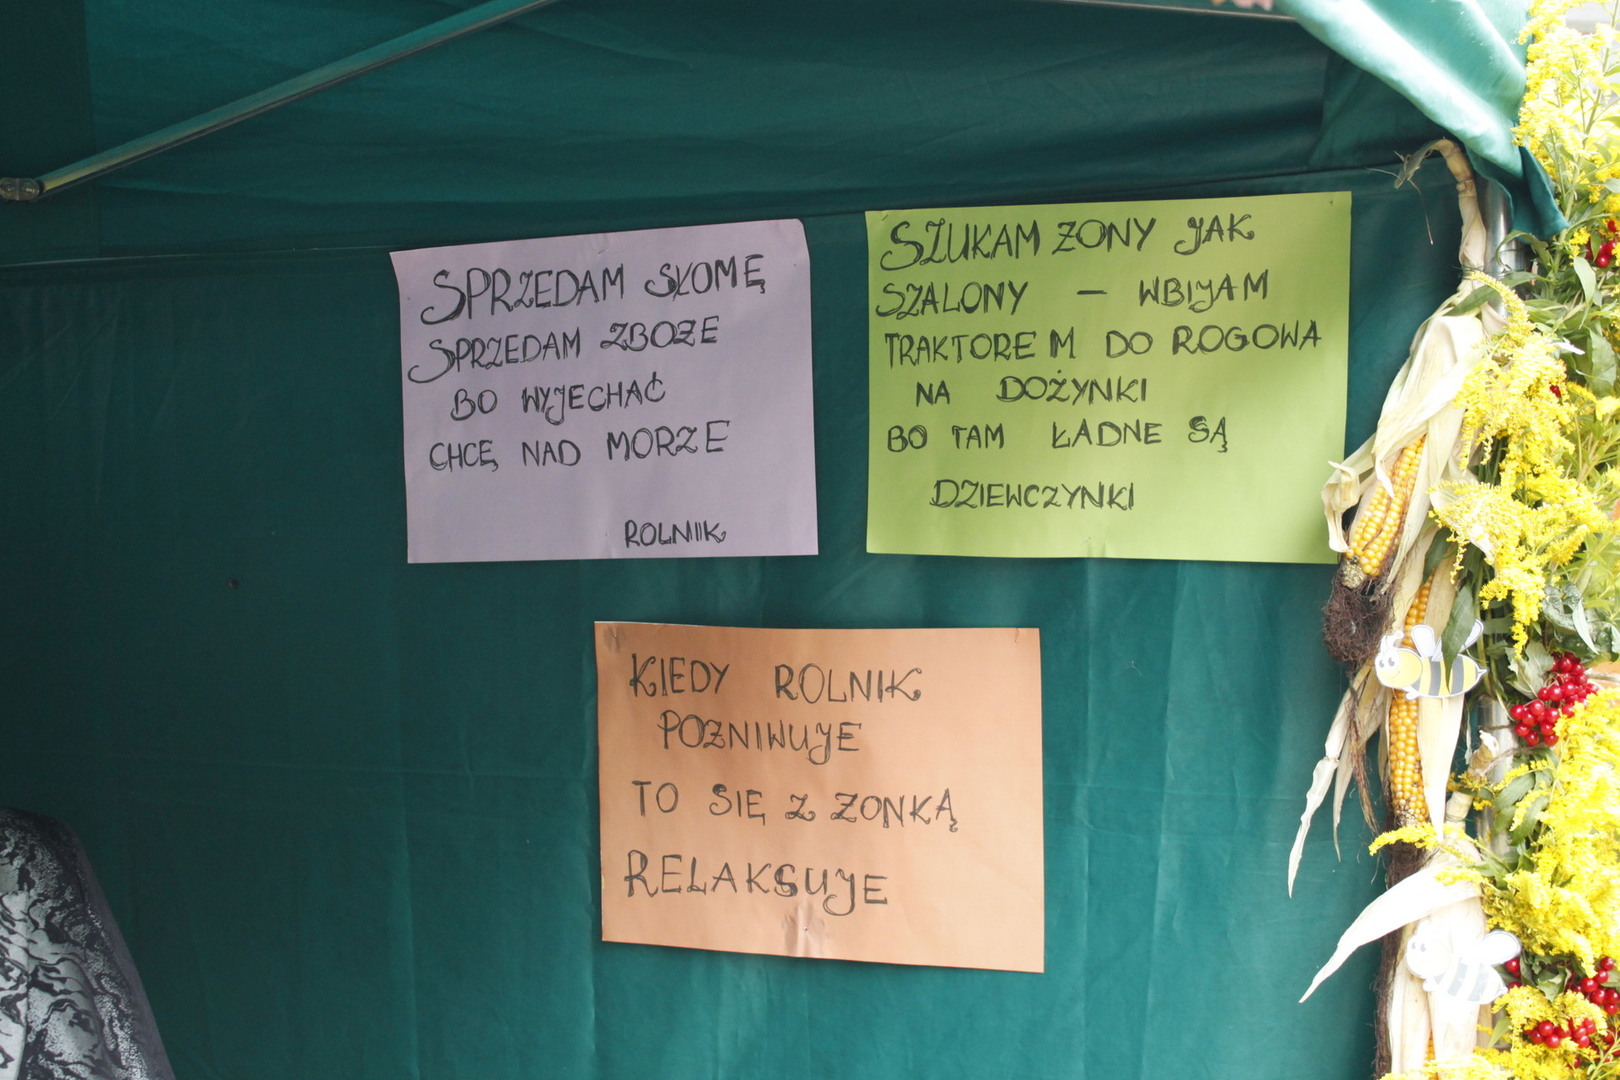 SPRZEDAM SŁOMĘ
SPRZEDAM ZBOZE
BO WYJECHAĆ
CHCĘ NAD MORZE
ROLNIK
SZUKAM ZONY JAK
SZALONY – WBIJAM
TRAKTOREM DO ROGOWA
NA DOŻYNKI
BO TAM ŁADNE SĄ
DZIEWCZYNKI
KIEDY ROLNIK
POZNIWUJE
TO SIĘ Z ZONKĄ
RELAKSUJE